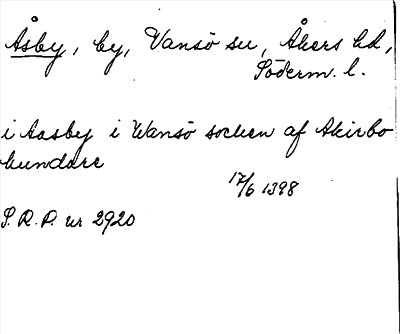 Åsby, by, Vansö sn, Åkers hd,
Söderm. l.
i Aasby i Wansö socken af Akirbo
hundare
17/6 1398
S.R.P. nr 2920